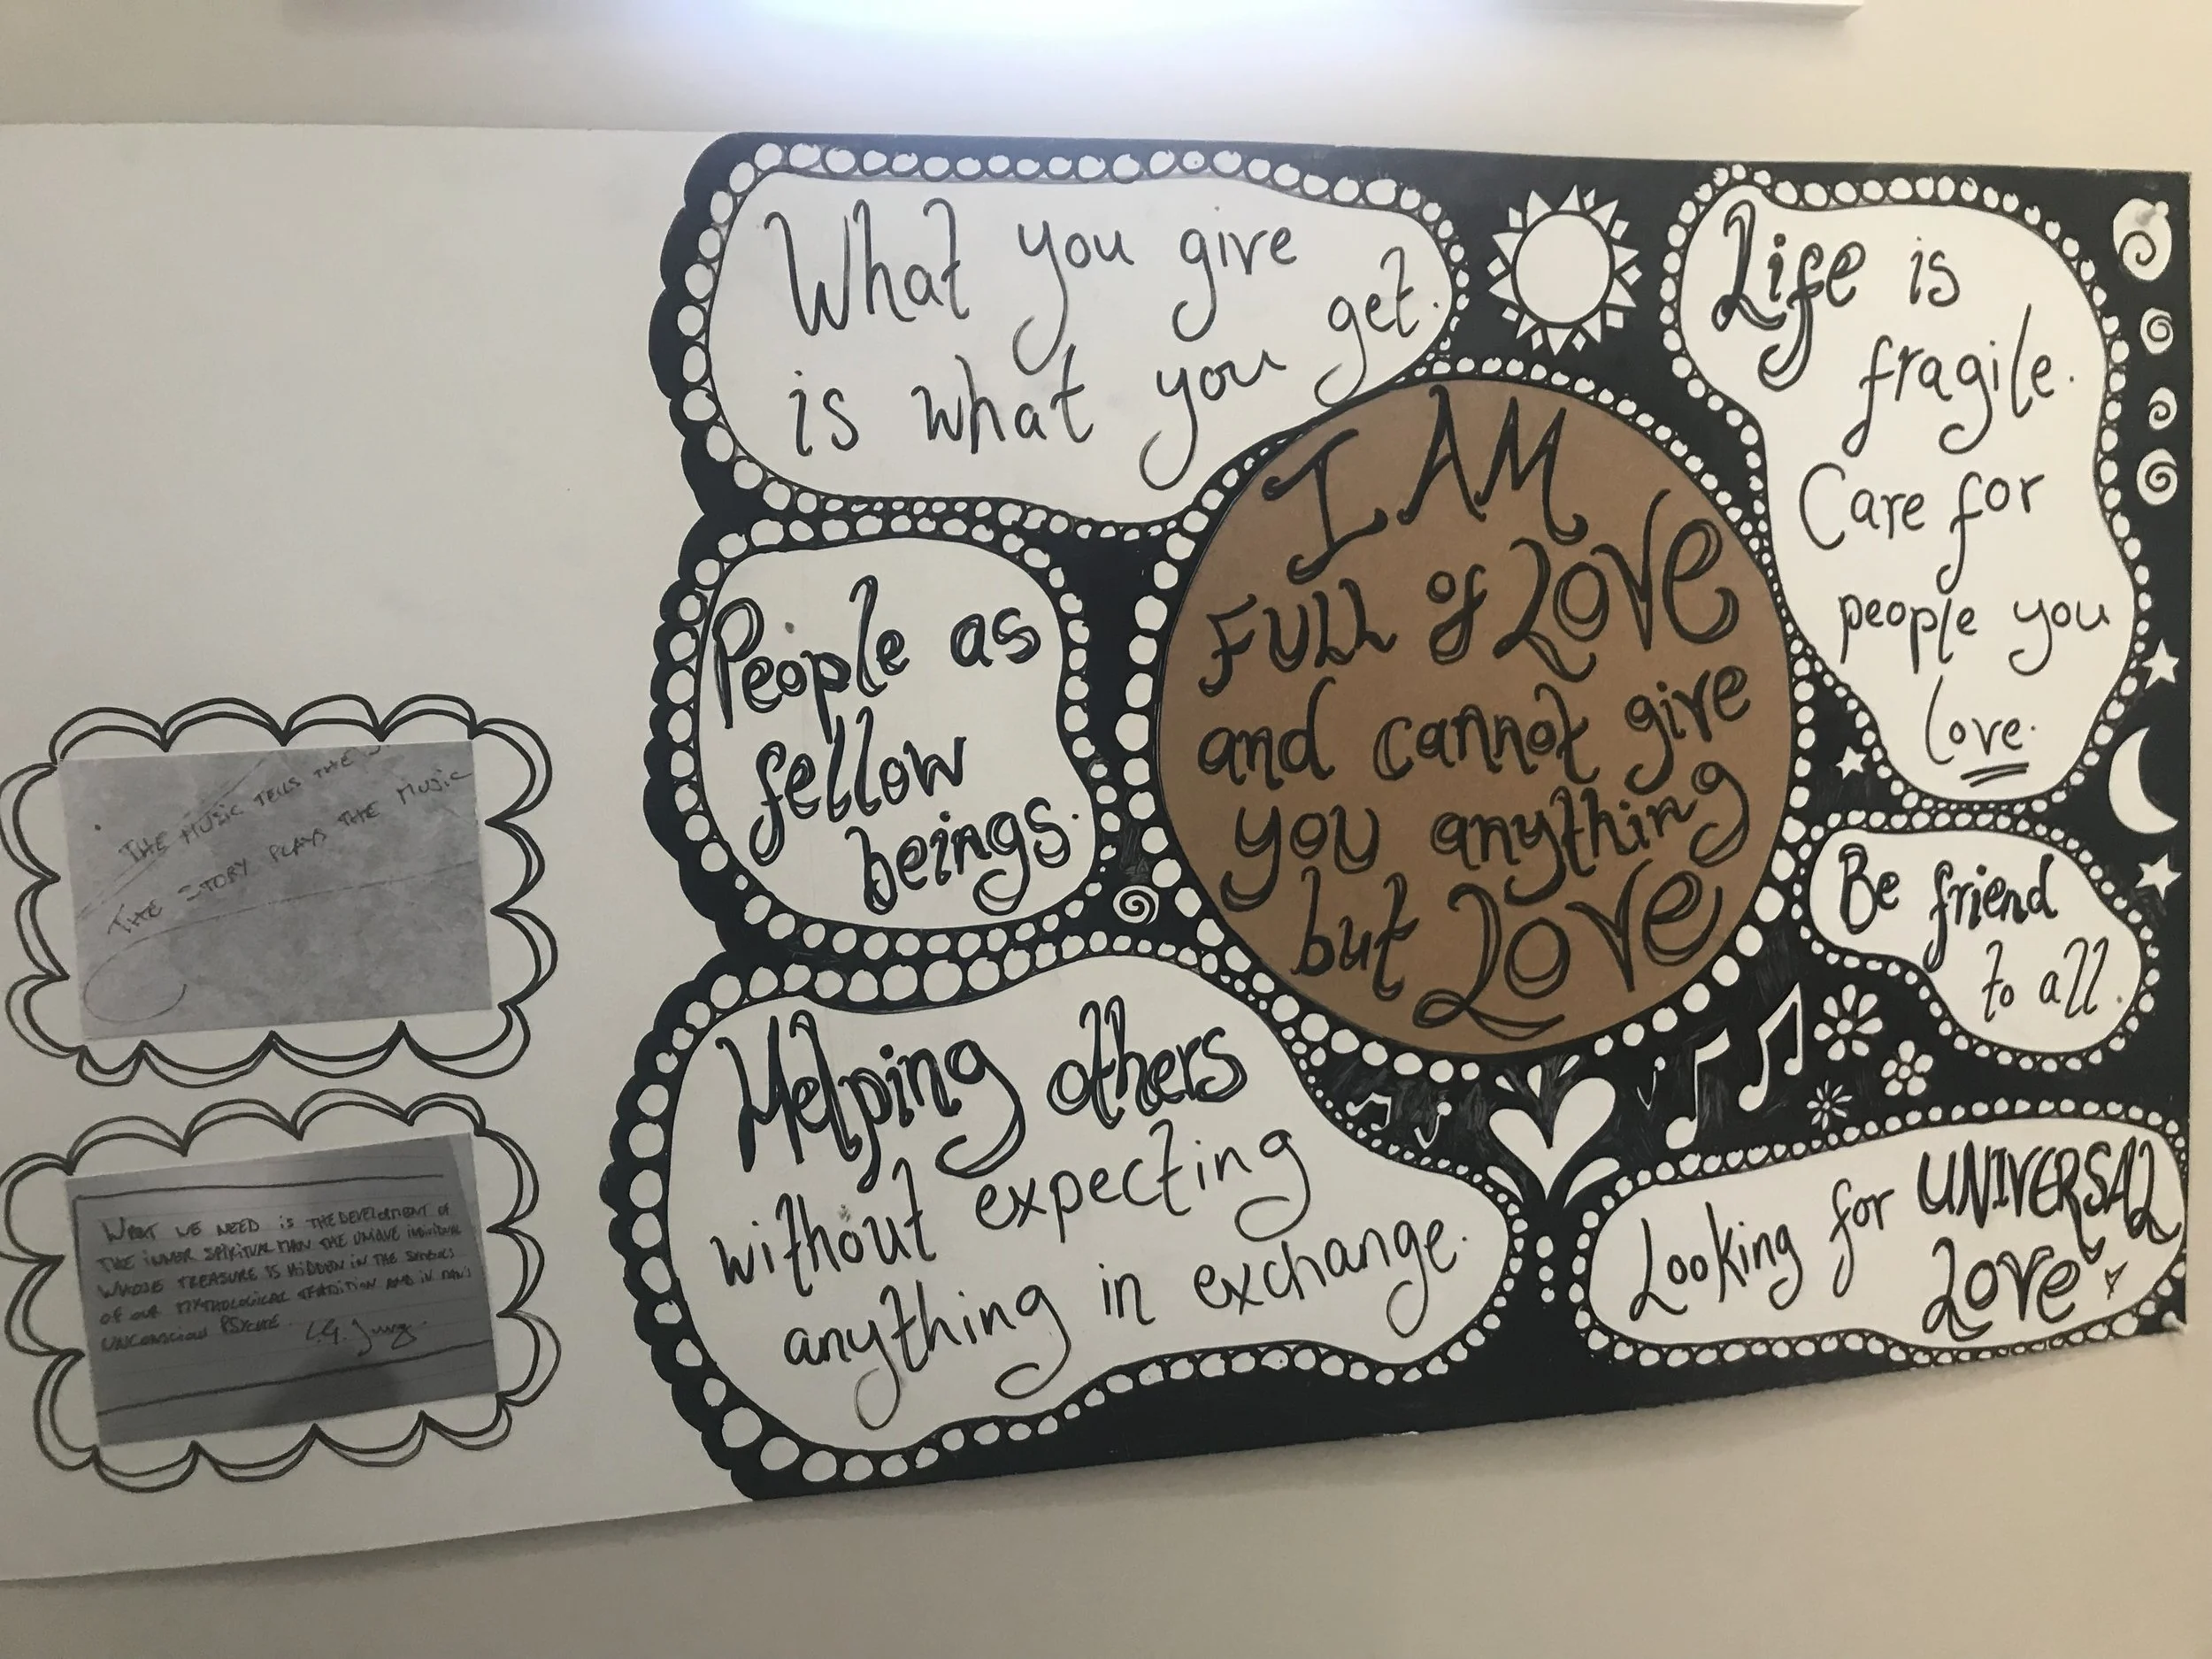 What you give
is what you get.
People as
fellow
beings.
Helping others
without expecting
anything in exchange.
I AM
FULL of LOVE
and cannot give
you anything
but LOVE
Life is
fragile.
Care for
people you
love.
Be friend
to all.
Looking for UNIVERSAL
LOVE
THE MUSIC TELLS THE
THE STORY PLAYS THE MUSIC
WHAT WE NEED IS THE DEVELOPMENT OF
THE INNER SPIRITUAL MAN THE UNIQUE INDIVIDUAL
WHOSE TREASURE IS HIDDEN IN THE SYMBOLS
OF OUR MYTHOLOGICAL TRADITION AND IN MAN'S
UNCONSCIOUS PSYCHE.
C.G. Jung